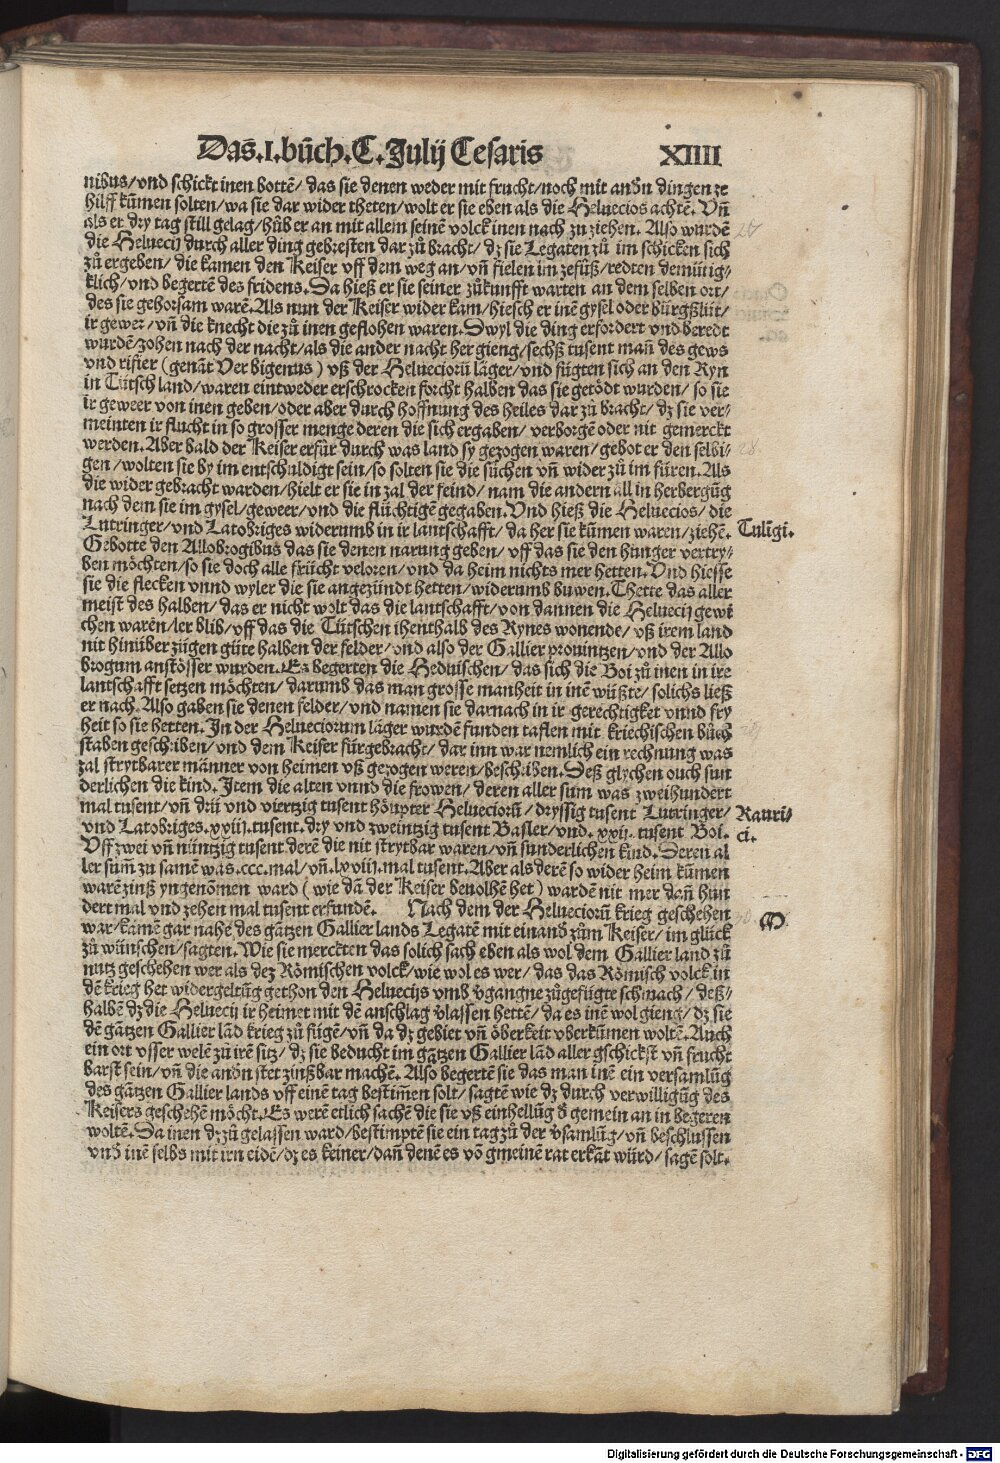 Das̄.I.bůch.C.Julij Cesaris XIIII
nibus/vnd schickt inen bottē/das sie denen weder mit frucht/noch mit andn̄ dingen ze
hilff kūmen solten/wa sie dar wider theten/wolt er sie eben als die Heluecios achtē. Vn̄
als er dry tag still gelag/hůb er an mit allem seinē volck inen nach zu ziehen. Also wurdē
die Heluecij durch aller ding gebresten dar zů bracht/dz sie Legaten zů im schicken sich
zů ergeben/die kamen den Keiser vff dem weg an/vn̄ fielen im zefůß/redten demütig/
klich/vnd begertē des fridens. Da hieß er sie seiner zůkunfft warten an dem selben ort/
des sie gehorsam warē. Als nun der Keiser wider kam/hiesch er inē gysel oder bürgßlüt/
ir gewer/vn̄ die knecht die zů inen geflohen waren. Dwyl die ding erfordert vnd beredt
wurdē/zohen nach der nacht/als die ander nacht her gieng/sechß tusent man̄ des gews
vnd rifier (genāt Verbigenus) vß der Helueciorū läger/vnd fůgten sich an den Ryn
in Tütsch land/waren eintweder erschrocken forcht halben das sie getödt wurden/so sie
ir geweer von inen geben/oder aber durch hoffnung des heiles dar zů bracht/dz sie ver/
meinten ir flucht in so grosser menge deren die sich ergaben/verborgē oder nit gemerckt
werden. Aber bald der Keiser erfůr durch was land sy gezogen waren/gebot er den selbi/
gen/wolten sie by im entschuldigt sein/so solten sie die sůchen vn̄ wider zů im fůren. Als
die wider gebracht warden/hielt er sie in zal der feind/nam die andern all in herbergūg
nach dem sie im gysel/geweer/vnd die flüchtigē gegaben. Vnd hieß die Heluecios/die
Lutringer/vnd Latobriges widerumb in ir lantschafft/da her sie kūmen waren/ziehē. Tulīgi.
Gebotte den Allobrogibus das sie denen narung geben/vff das sie den hunger vertry/
ben möchten/so sie doch alle frücht veloren/vnd da heim nichts mer hetten. Vnd hiesse
sie die flecken vnnd wyler die sie angezündt hetten/widerumb buwen. Thette das aller
meist des halben/das er nicht wolt das die lantschafft/von dannen die Heluecij gewi
chen warēn/ler blib/vff das die Tütschen ihenthalb des Rynes wonende/vß irem land
nit hinüber zügen gůte halben der felder/vnd also der Gallier prouintzen/vnd der Allo
brogum anstösser wurden. Es begerten die Heduischen/das sich die Boi zů inen in ire
lantschafft setzen möchten/darumb das man grosse manheit in inē wüßte/solichs ließ
er nach. Also gaben sie denen felder/vnd namen sie darnach in ir gerechtigket vnnd fry
heit so sie hetten. In der Helueciorum läger wurdē funden taflen mit kriechischen bůch
staben geschriben/vnd dem Keiser fürgebracht/dar inn war nemlich ein rechnung was
zal strytbarer männer von heimen vß gezogen weren/beschriben. Deß glychen ouch sun
derlichen die kind. Item die alten vnnd die frowen/deren aller sum was zweihundert
mal tusent/vn̄ drü vnd viertzig tusent höupter Helueciorū/dryssig tusent Lutringer/ Rauri/
vnd Latobriges.xxiij.tusent.dry vnd zweintzig tusent Basler/vnd.xxij.tusent Boi. ci.
Vff zwei vn̄ nüntzig tusent derē die nit strytbar waren/vn̄ sunderlichen kind. Deren al
ler sum̄ zu samē was.ccc.mal/vn̄.lxviij.mal tusent. Aber als derē so wider heim kūmen
warē zinß yngenōmen ward (wie dā der Keiser beuolhē het) wardē nit mer dan̄ hun
dert mal vnd zehen mal tusent erfundē. Nach dem der Helueciorū krieg geschehen
war/kamē gar nahe des gātzen Gallier lands Legatē mit einand zům Keiser/im glück
zů wünschen/sagten. Wie sie merckten das solich sach eben als wol dem Gallier land zů
nutz geschehen wer als dez Römischen volck/wie wol es wer/das das Römisch volck in
dē krieg het widergeltūg gethon den Heluecijs vmb v̄gangne zůgefügte schmach/deß/
halbē dz die Heluecij ir heimet mit dē anschlag v̄lassen hettē/da es inē wol gieng/dz sie
dē gātzen Gallier lād krieg zů fügē/vn̄ da dz gebiet vn̄ öberkeit vberkūmen woltē. Auch
ein ort vsser welē zů irē sitz/dz sie beducht im gātzen Gallier lād aller gschickst vn̄ frucht
barst sein/vn̄ die andn̄ stet zinßbar machē. Also begertē sie das man inē ein versamlūg
des gātzen Gallier lands vff einē tag bestim̄en solt/sagtē wie dz durch verwilligūg des
Keisers geschehē möcht. Es werē etlich sachē die sie vß einhellūg d̄ gemein an in begeren
woltē. Da inen dz zů gelassen ward/bestimptē sie ein tag zů der v̄samlūg/vn̄ beschlussen
vnd inē selbs mit irn eidē/dz es keiner/dan̄ denē es vō gmeinē rat erkāt würd/sagē solt.
Digitalisierung gefördert durch die Deutsche Forschungsgemeinschaft - DFG